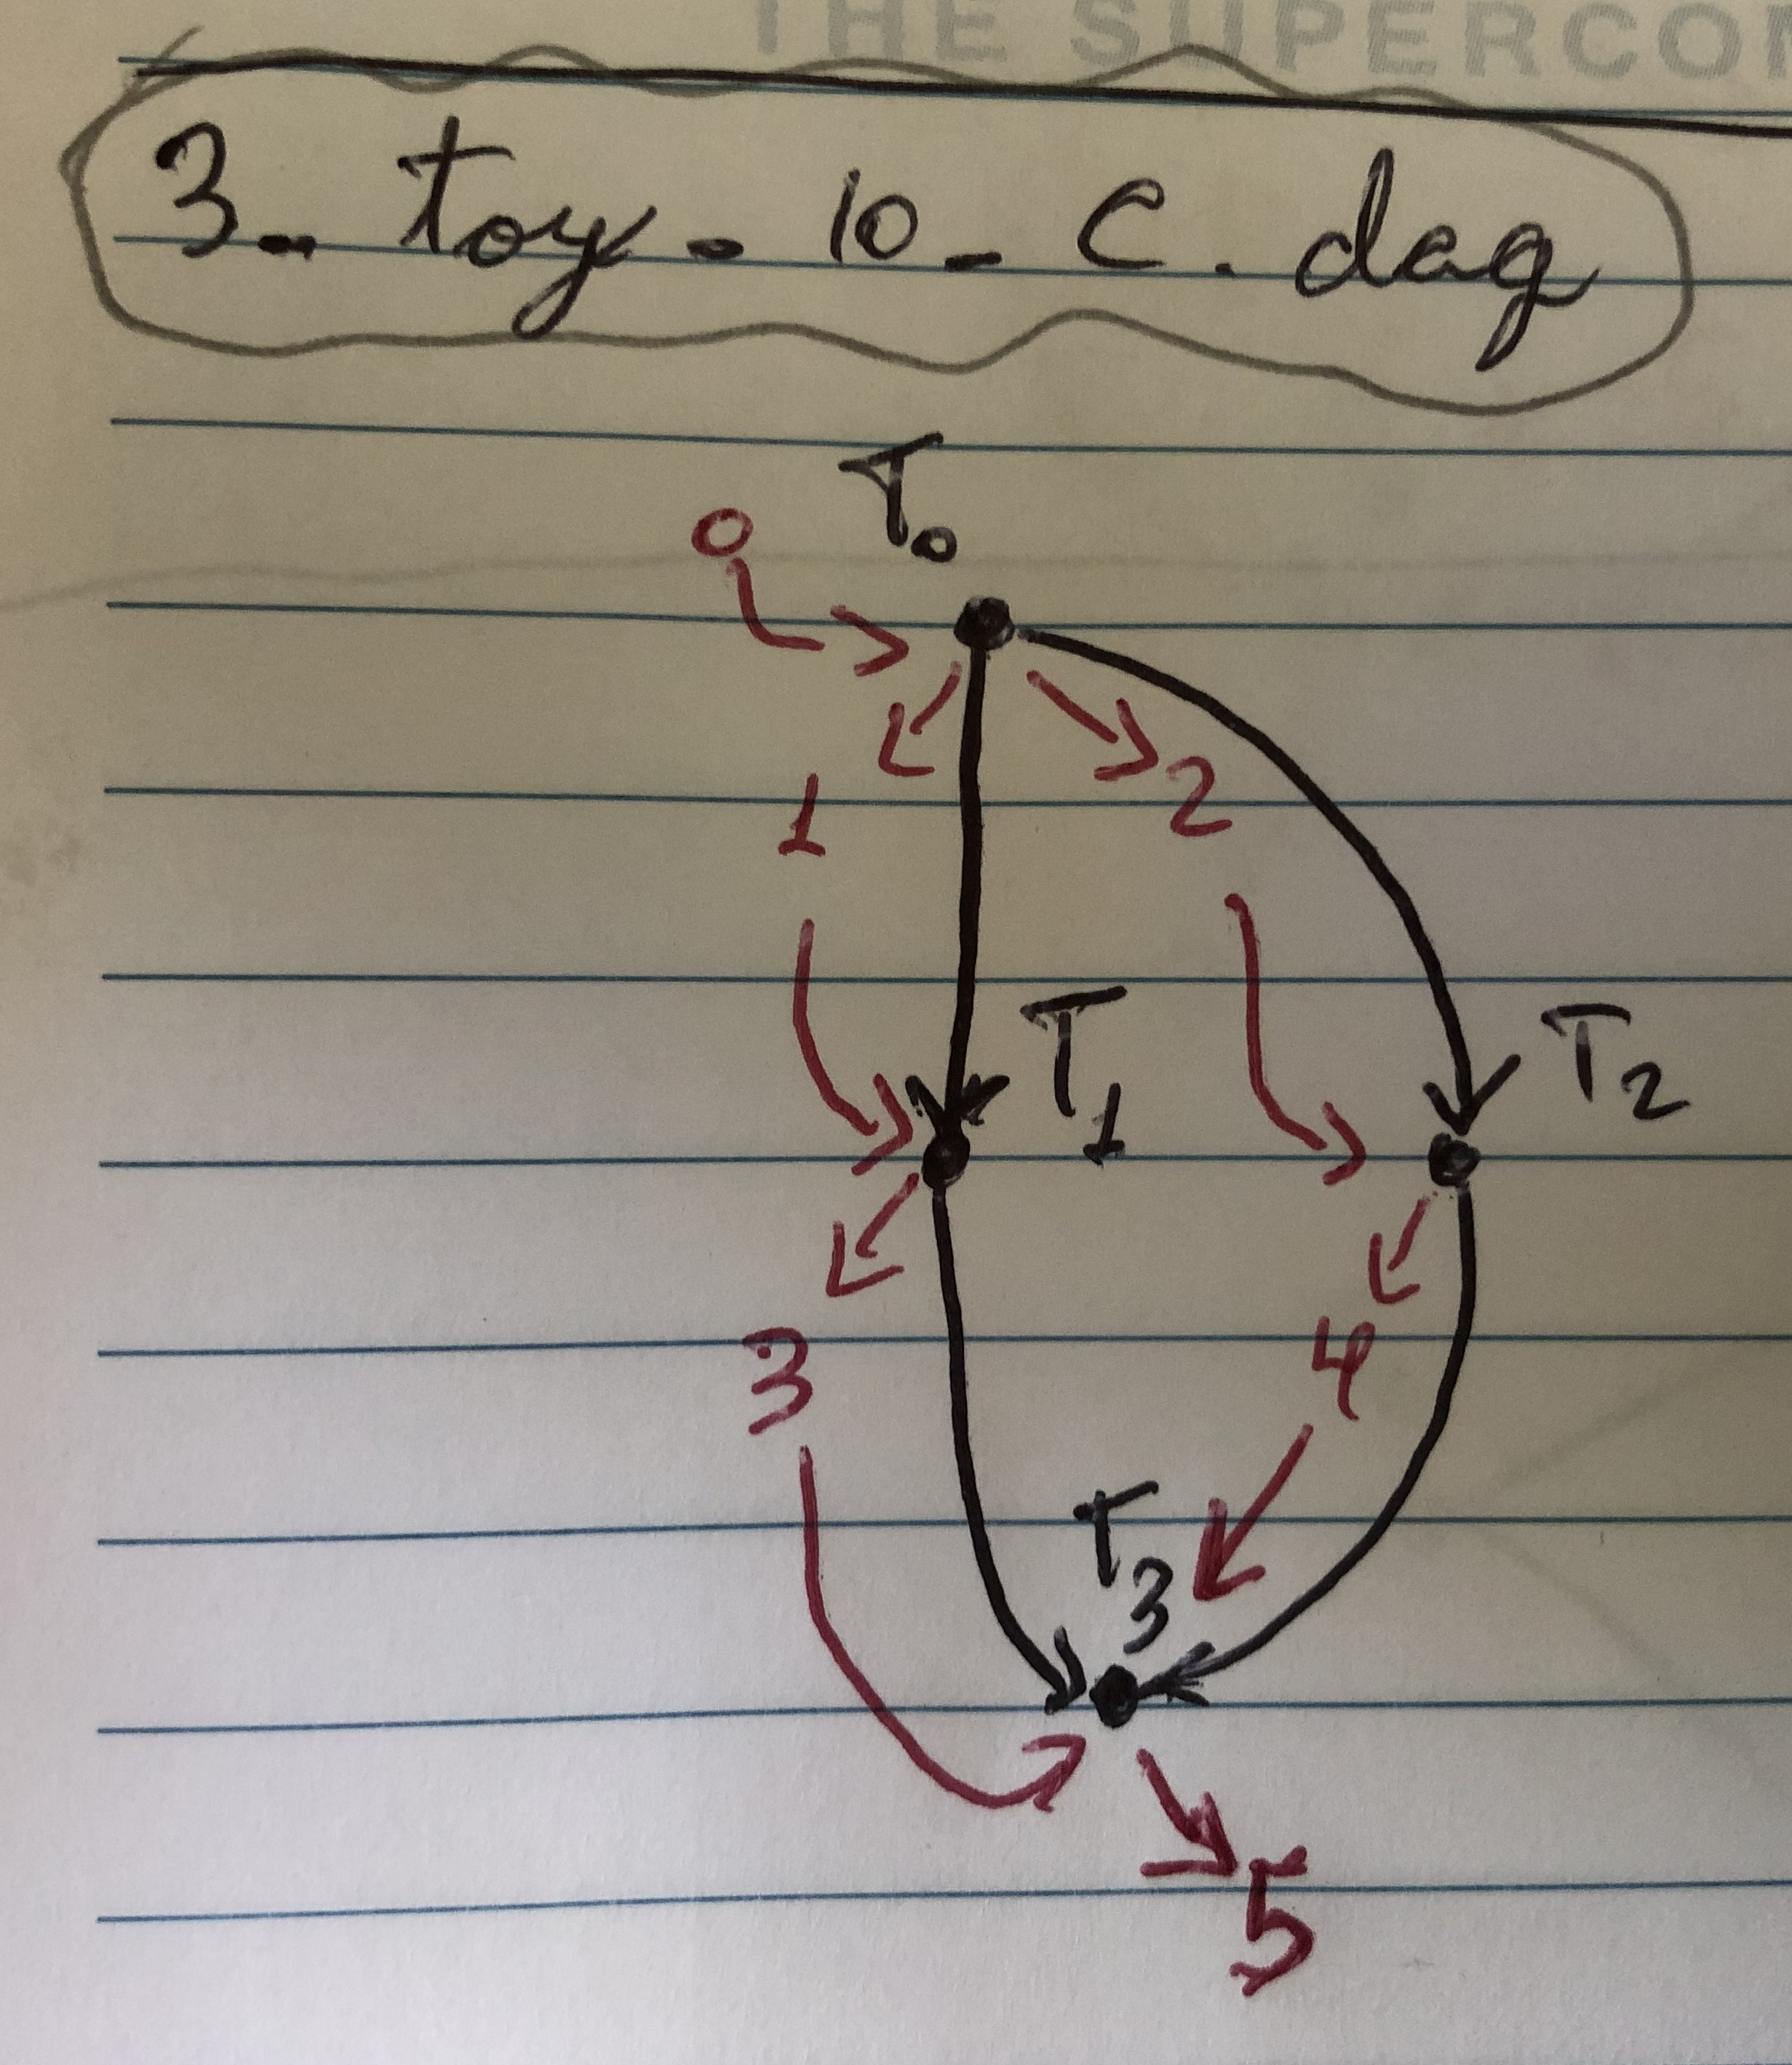 THE SUPERCOM
3. toy. 10 - C. dag
T0
0
1
2
T1
T2
3
4
T3
5